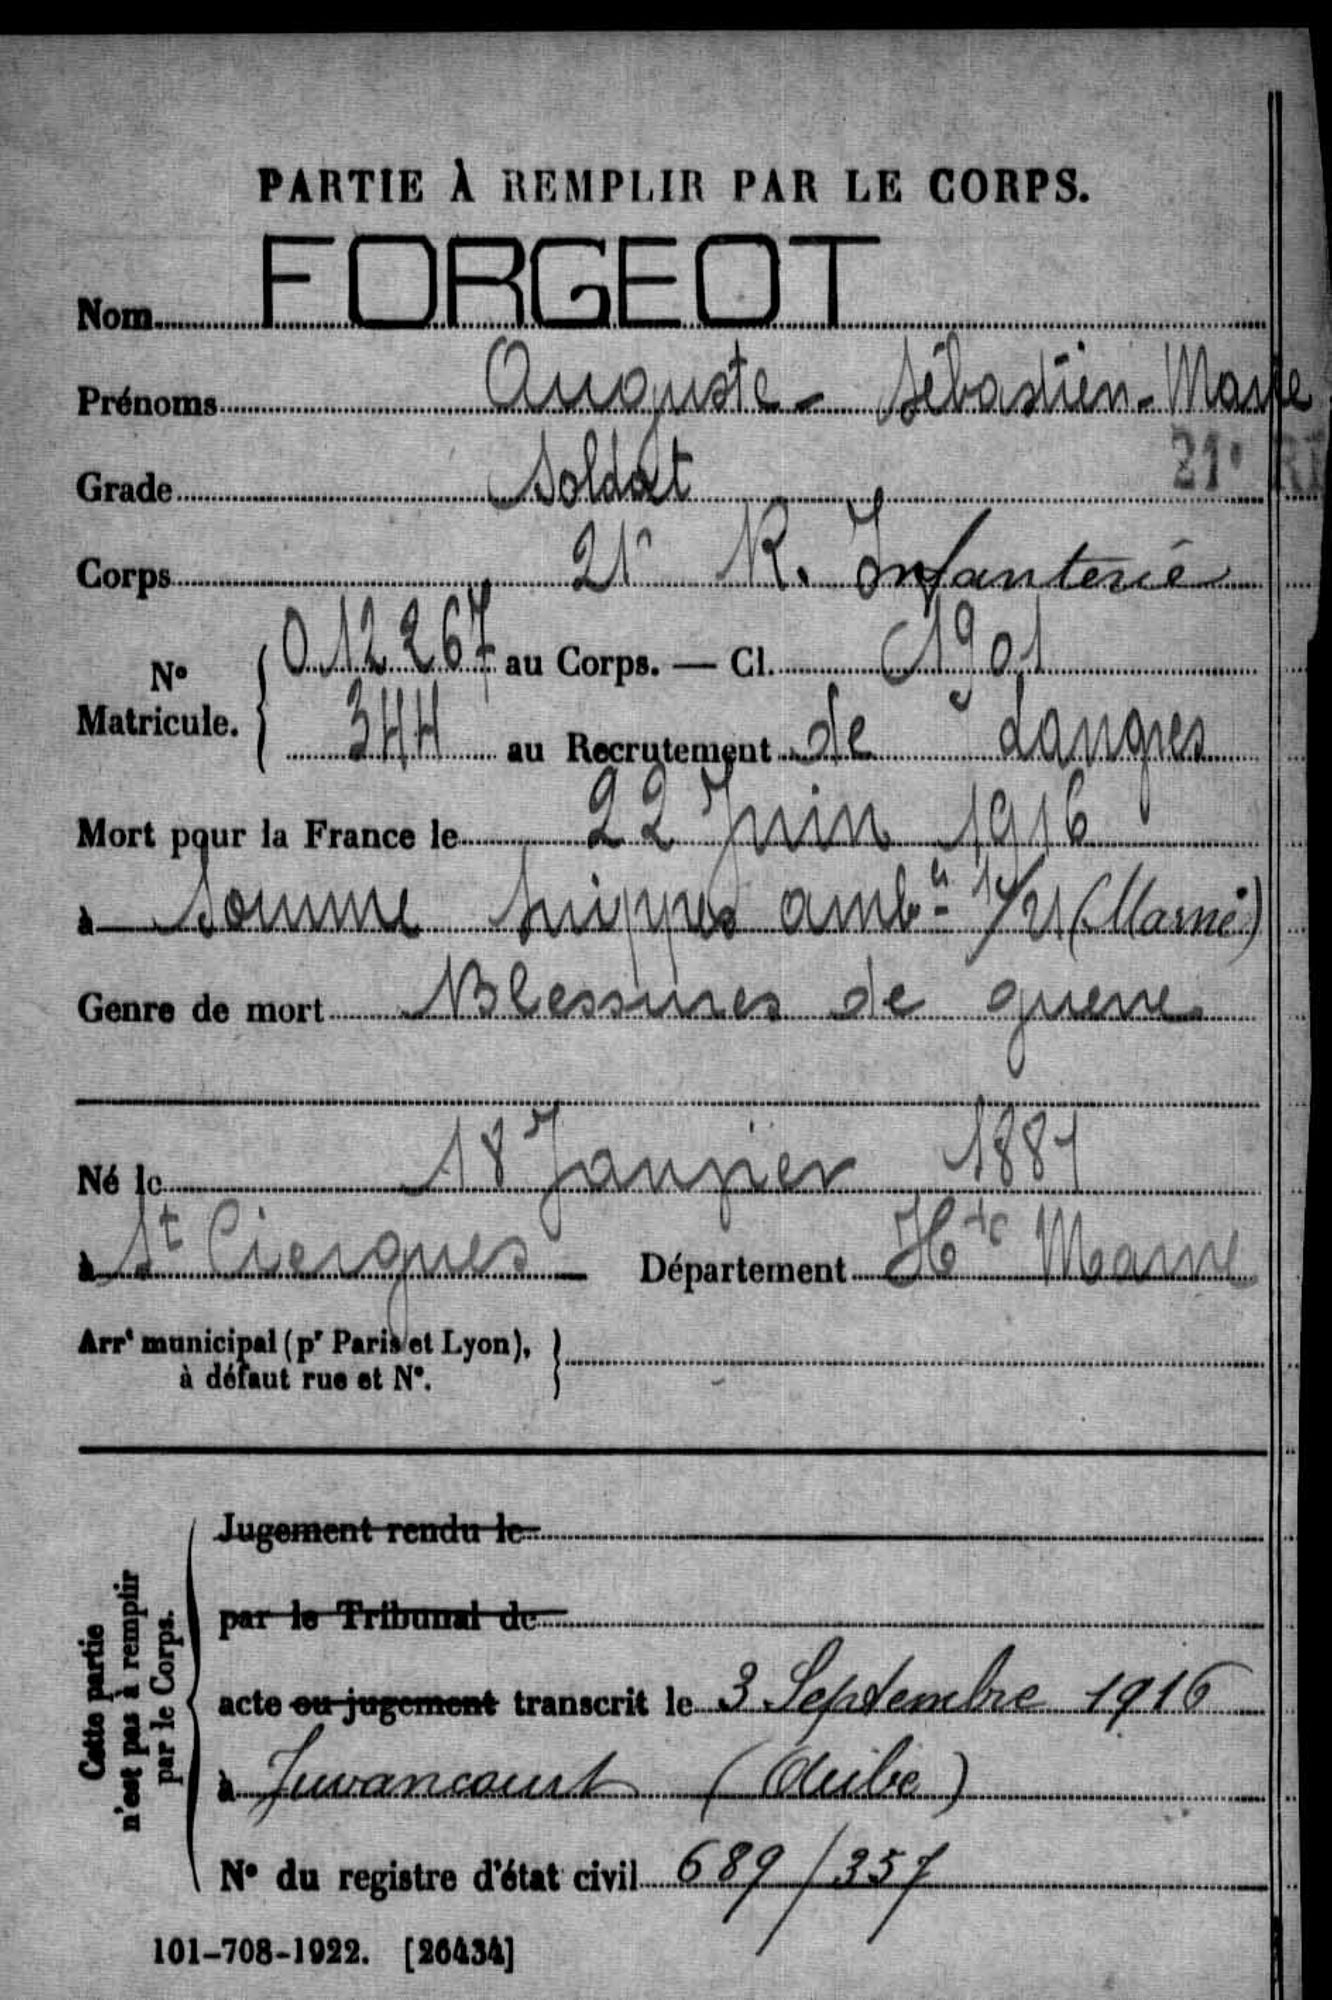 PARTIE À REMPLIR PAR LE CORPS.
Nom FORGEOT
Prénoms Auguste - Sébastien - Marie
21e RI
Grade Soldat
Corps 21e R. Infanterie
No Matricule. { 012267 au Corps. — Cl. 1901
344 au Recrutement de Langres
Mort pour la France le 22 Juin 1916
à Somme Suippes ambce 1/21 (Marne)
Genre de mort Blessures de guerre
Né le 18 Janvier 1881
à St Ciergues Département Hte Marne
Arrt municipal (pr Paris et Lyon), }
à défaut rue et No.
Cette partie
n'est pas à remplir
par le Corps.
Jugement rendu le
par le Tribunal de
acte ou jugement transcrit le 3 Septembre 1916
à Juvancourt (Aube)
No du registre d'état civil 689/357
101-708-1922. [26434]